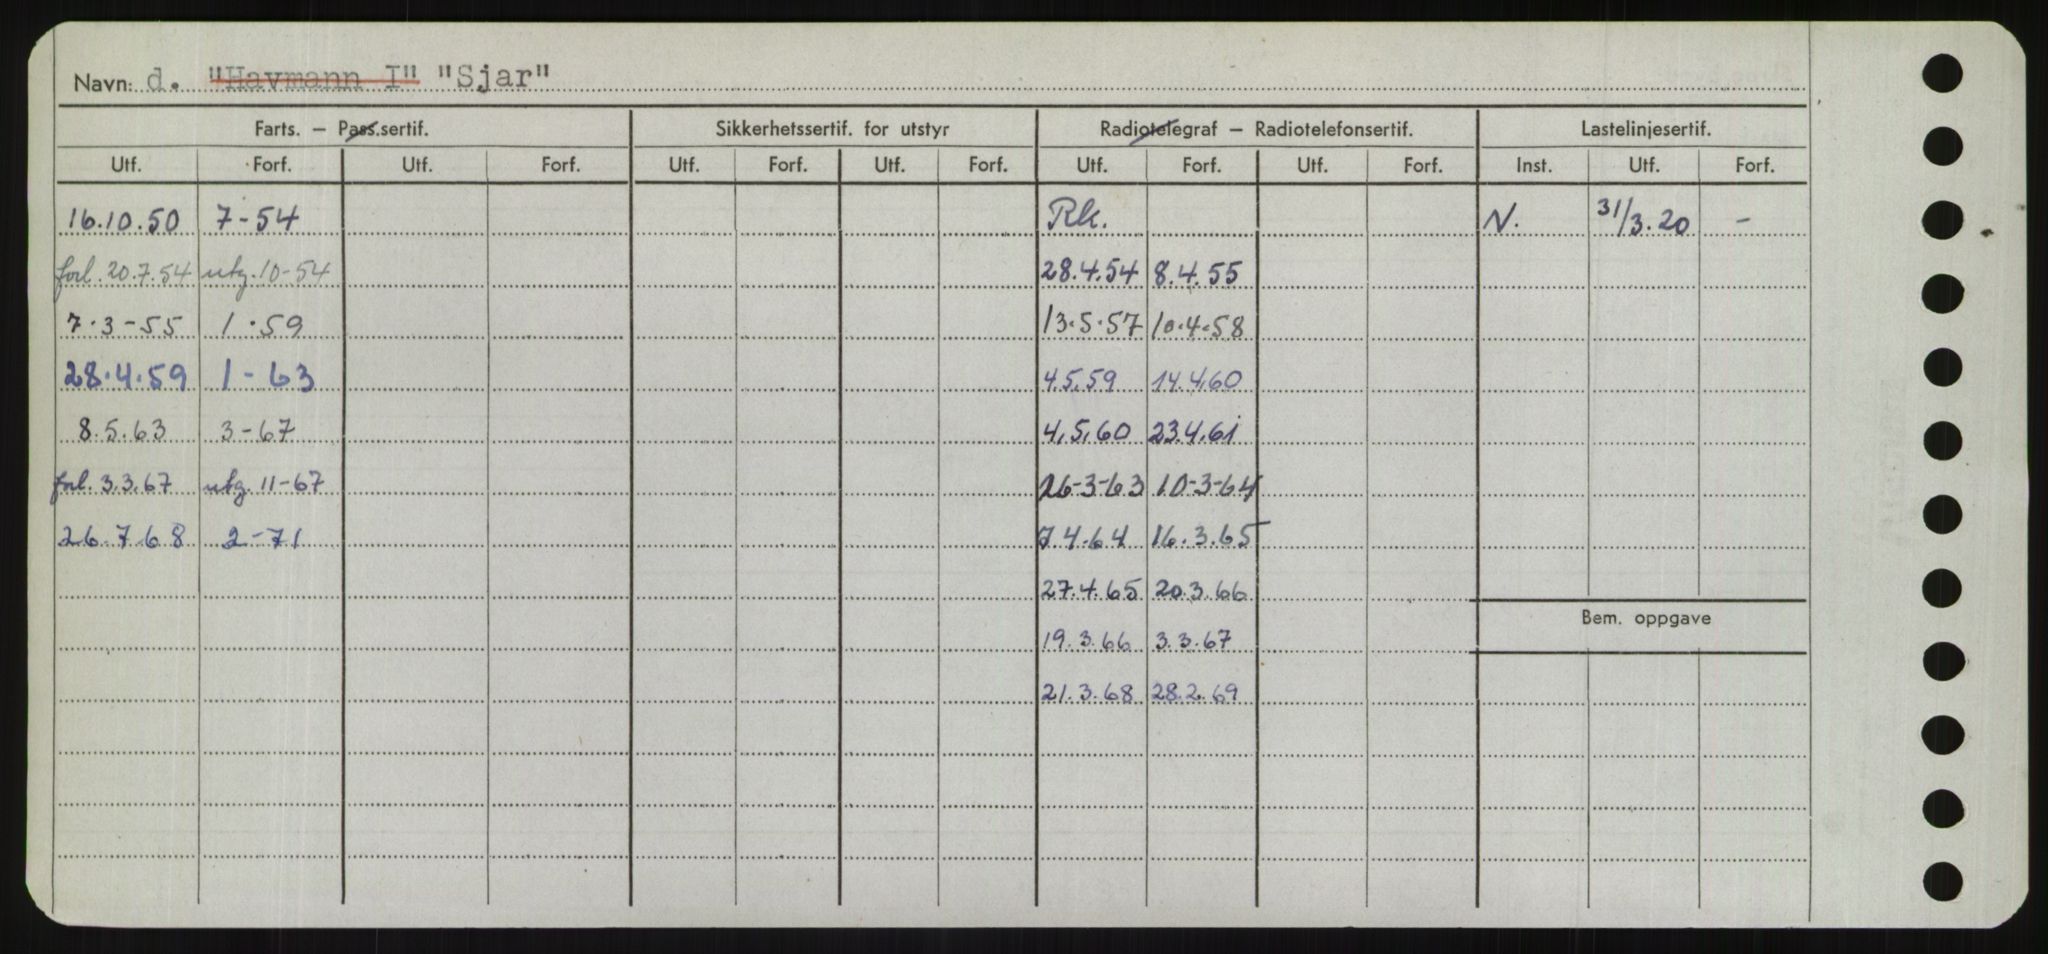 Navn: d. "Havmann I" "Sjar"
Farts. – Pass.sertif. Sikkerhetssertif. for utstyr Radiotelegraf – Radiotelefonsertif. Lastelinjesertif.
Utf. Forf. Utf. Forf. Utf. Forf. Utf. Forf. Utf. Forf. Utf. Forf. Inst. Utf. Forf.
16.10.50 7-54 Rk. N. 31/3.20 -
forl. 20.7.54 utg. 10-54 28.4.54 8.4.55
7.3-55 1.59 13.5.57 10.4.58
28.4.59 1-63 4.5.59 14.4.60
8.5.63 3-67 4.5.60 23.4.61
forl. 3.3.67 utg. 11-67 26-3-63 10-3-64
26.7.68 2-71 7.4.64 16.3.65
27.4.65 20.3.66
Bem. oppgave
19.3.66 3.3.67
21.3.68 28.2.69